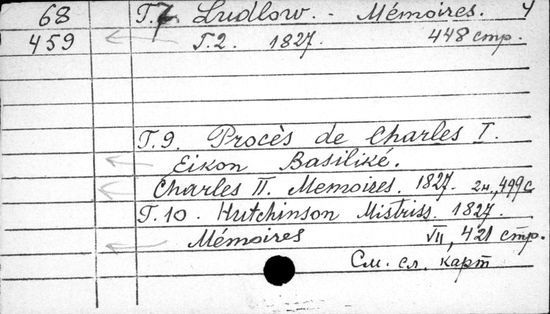 68 Т.7. Ludlow. - Mémoires. 4
459 Т.2. 1827. 448 стр.
Т.9. Procès de Charles I.
Eikon Basiliké.
Charles II. Memoires. 1827. 2н., 499 с
Т.10. Hutchinson Mistriss. 1827.
Mémoires VII, 421 стр.
См. сл. карт